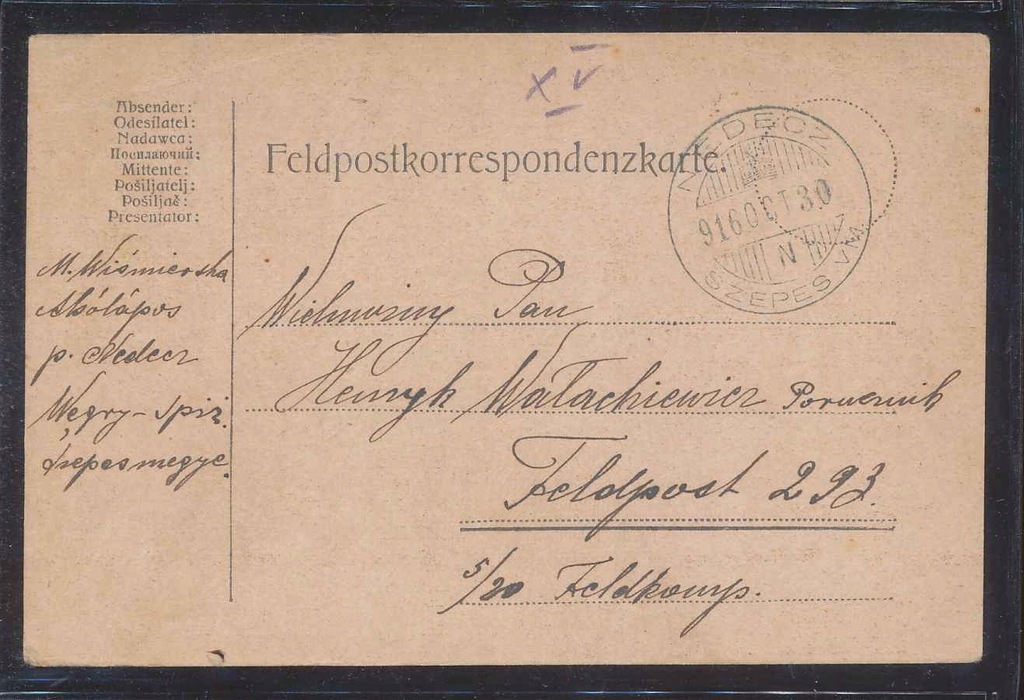 X V
Absender:
Odesílatel:
Nadawca:
Посилаючий:
Mittente:
Pošiljatelj:
Pošiljač:
Presentator:
Feldpostkorrespondenzkarte.
NEDECZ
916 OCT 30
N
SZEPES VM.
M. Wiśmierska
Alsólápos
p. Nedecz
Węgry - Spiż.
Szepesmegye.
Wielmożny Pan
Henryk Wałachiewicz Porucznik
Feldpost 293.
5/20 Feldkomp.